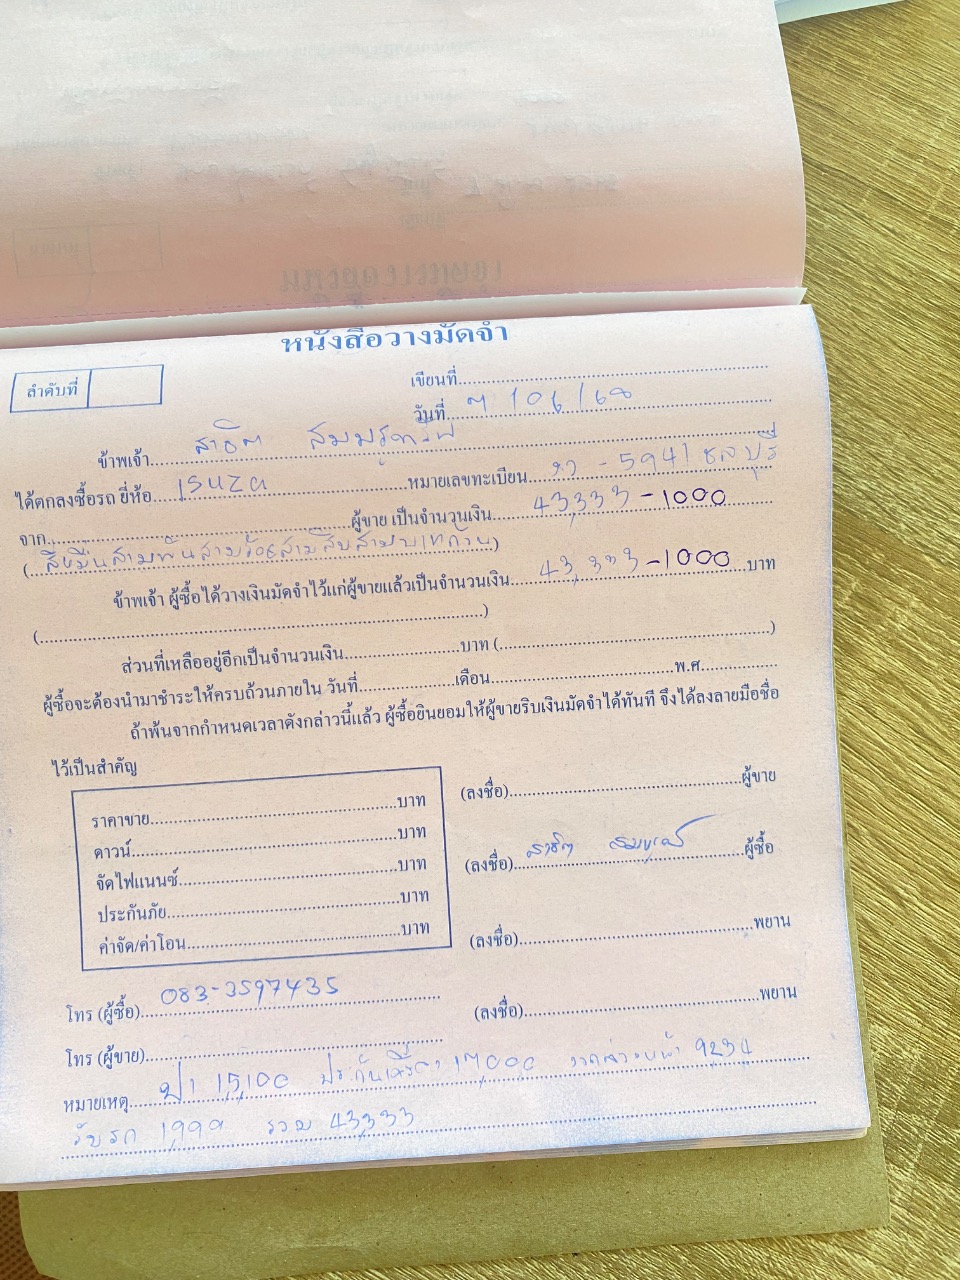 หนังสือวางมัดจำ
ลำดับที่
เขียนที่
วันที่ ๗ / 06 / 68
ข้าพเจ้า สาธิต
ได้ตกลงซื้อรถ ยี่ห้อ หมายเลขทะเบียน - 5941 ชลบุรี
จาก ผู้ขาย เป็นจำนวนเงิน 43,333 -1000
(สี่หมื่นสามพันสามร้อยสามสิบสามบาทถ้วน)
ข้าพเจ้า ผู้ซื้อได้วางเงินมัดจำไว้แก่ผู้ขายแล้วเป็นจำนวนเงิน 43,333 -1000 บาท
( )
ส่วนที่เหลืออยู่อีกเป็นจำนวนเงิน บาท ( )
ผู้ซื้อจะต้องนำมาชำระให้ครบถ้วนภายใน วันที่ เดือน พ.ศ.
ถ้าพ้นจากกำหนดเวลาดังกล่าวนี้แล้ว ผู้ซื้อยินยอมให้ผู้ขายริบเงินมัดจำได้ทันที จึงได้ลงลายมือชื่อ
ไว้เป็นสำคัญ
ราคาขาย บาท
ดาวน์ บาท
จัดไฟแนนซ์ บาท
ประกันภัย บาท
ค่าจัด/ค่าโอน บาท
(ลงชื่อ) ผู้ขาย
(ลงชื่อ) สาธิต ผู้ซื้อ
(ลงชื่อ) พยาน
(ลงชื่อ) พยาน
โทร (ผู้ซื้อ) 083-3597435
โทร (ผู้ขาย)
หมายเหตุ ป1 15,100 17,000 9234
รับรถ 1,999 รวม 43,333